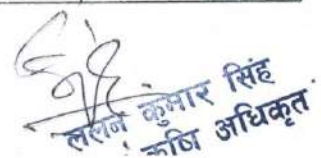 ललन कुमार सिंह
कृषि अधिकृत